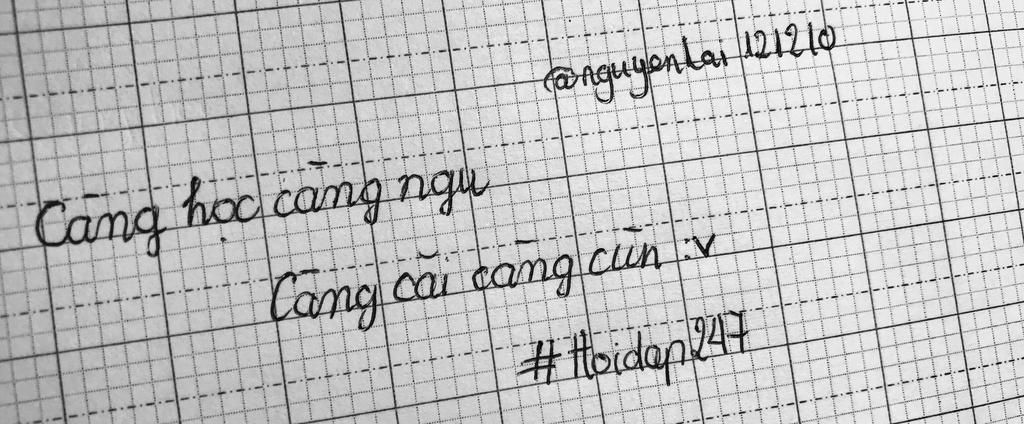 @nguyenlai 121210
Càng học càng ngu
Càng cãi càng cùn :v
# Hoidap247